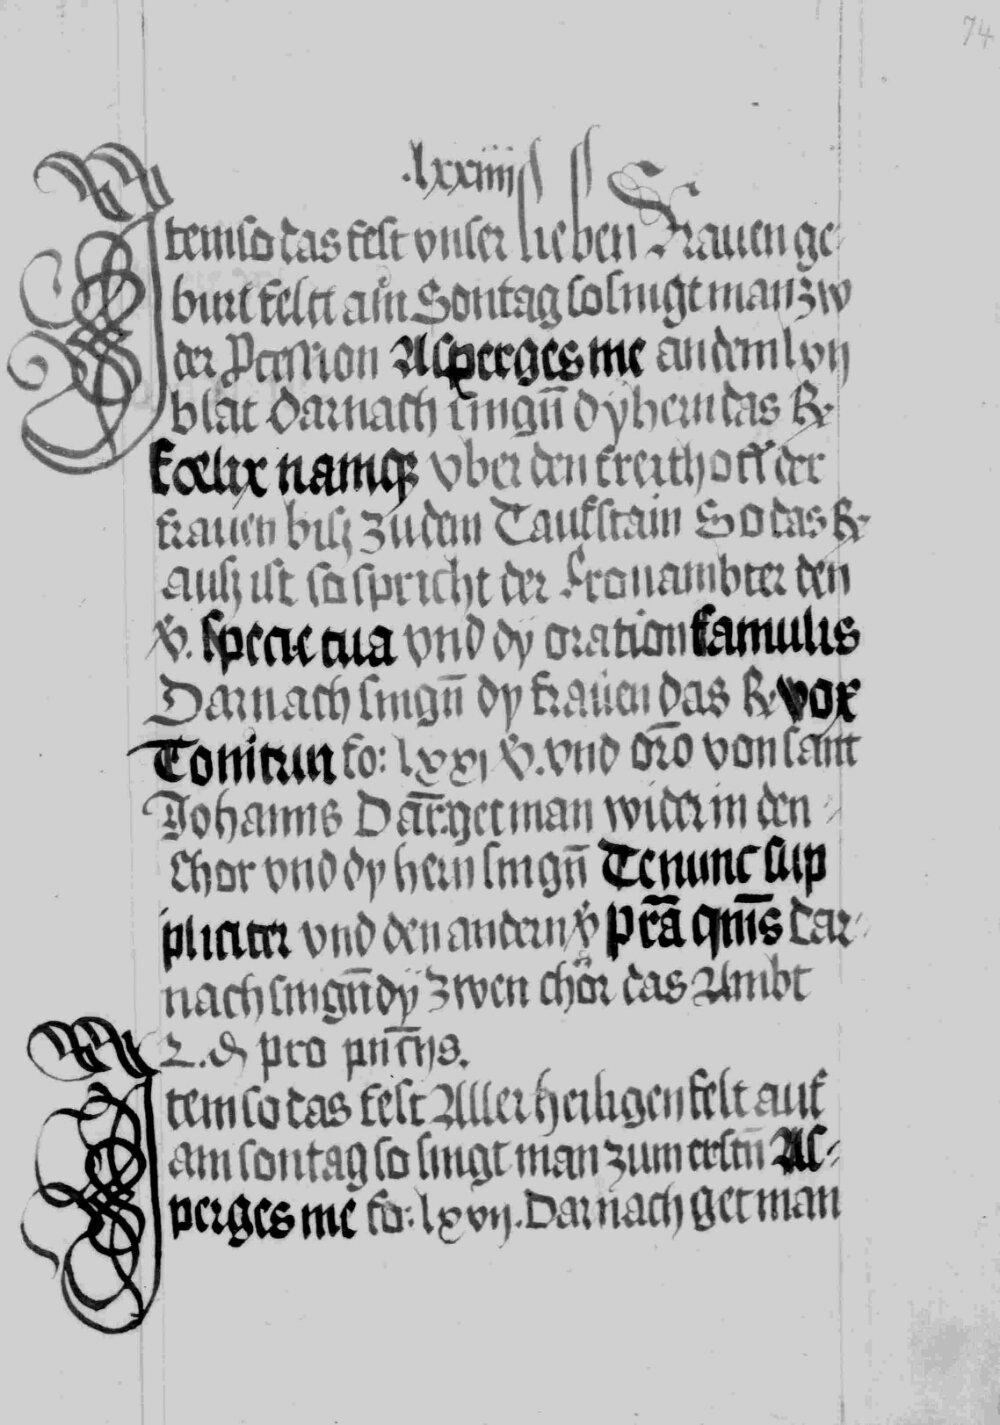 74
.lxxiiij
Item so das fest vnser lieben Frauen ge¬
burt felt am Sontag so singt man zw
der Pcession Asperges me an dem lvij
blat darnach singn̄ dy hern das ℟
Foelix namqȝ vber den freithoff der
frauen bisz zu dem Taufstain So das ℟
ausz ist so spricht der Fronambter den
℣. specie tua vnd dy oration Famulis
Darnach singn̄ dy frauen das ℟ Vox
Tonitrui fo: lxxi ℣. vnd or̄o von sant
Johanns Dar̄. get man wider in den
Chor vnd dy hern singn̄ Te nunc sup
pliciter vnd den andern ℣ Pr̄a qm̄s dar¬
nach singn̄ dÿ zwen chör das Ambt
pro pn̄cijs.
Item so das fest Aller heiligen felt auf
am sontag so singt man zum erstn̄ As¬
perges me fo: lxvij. Darnach get man